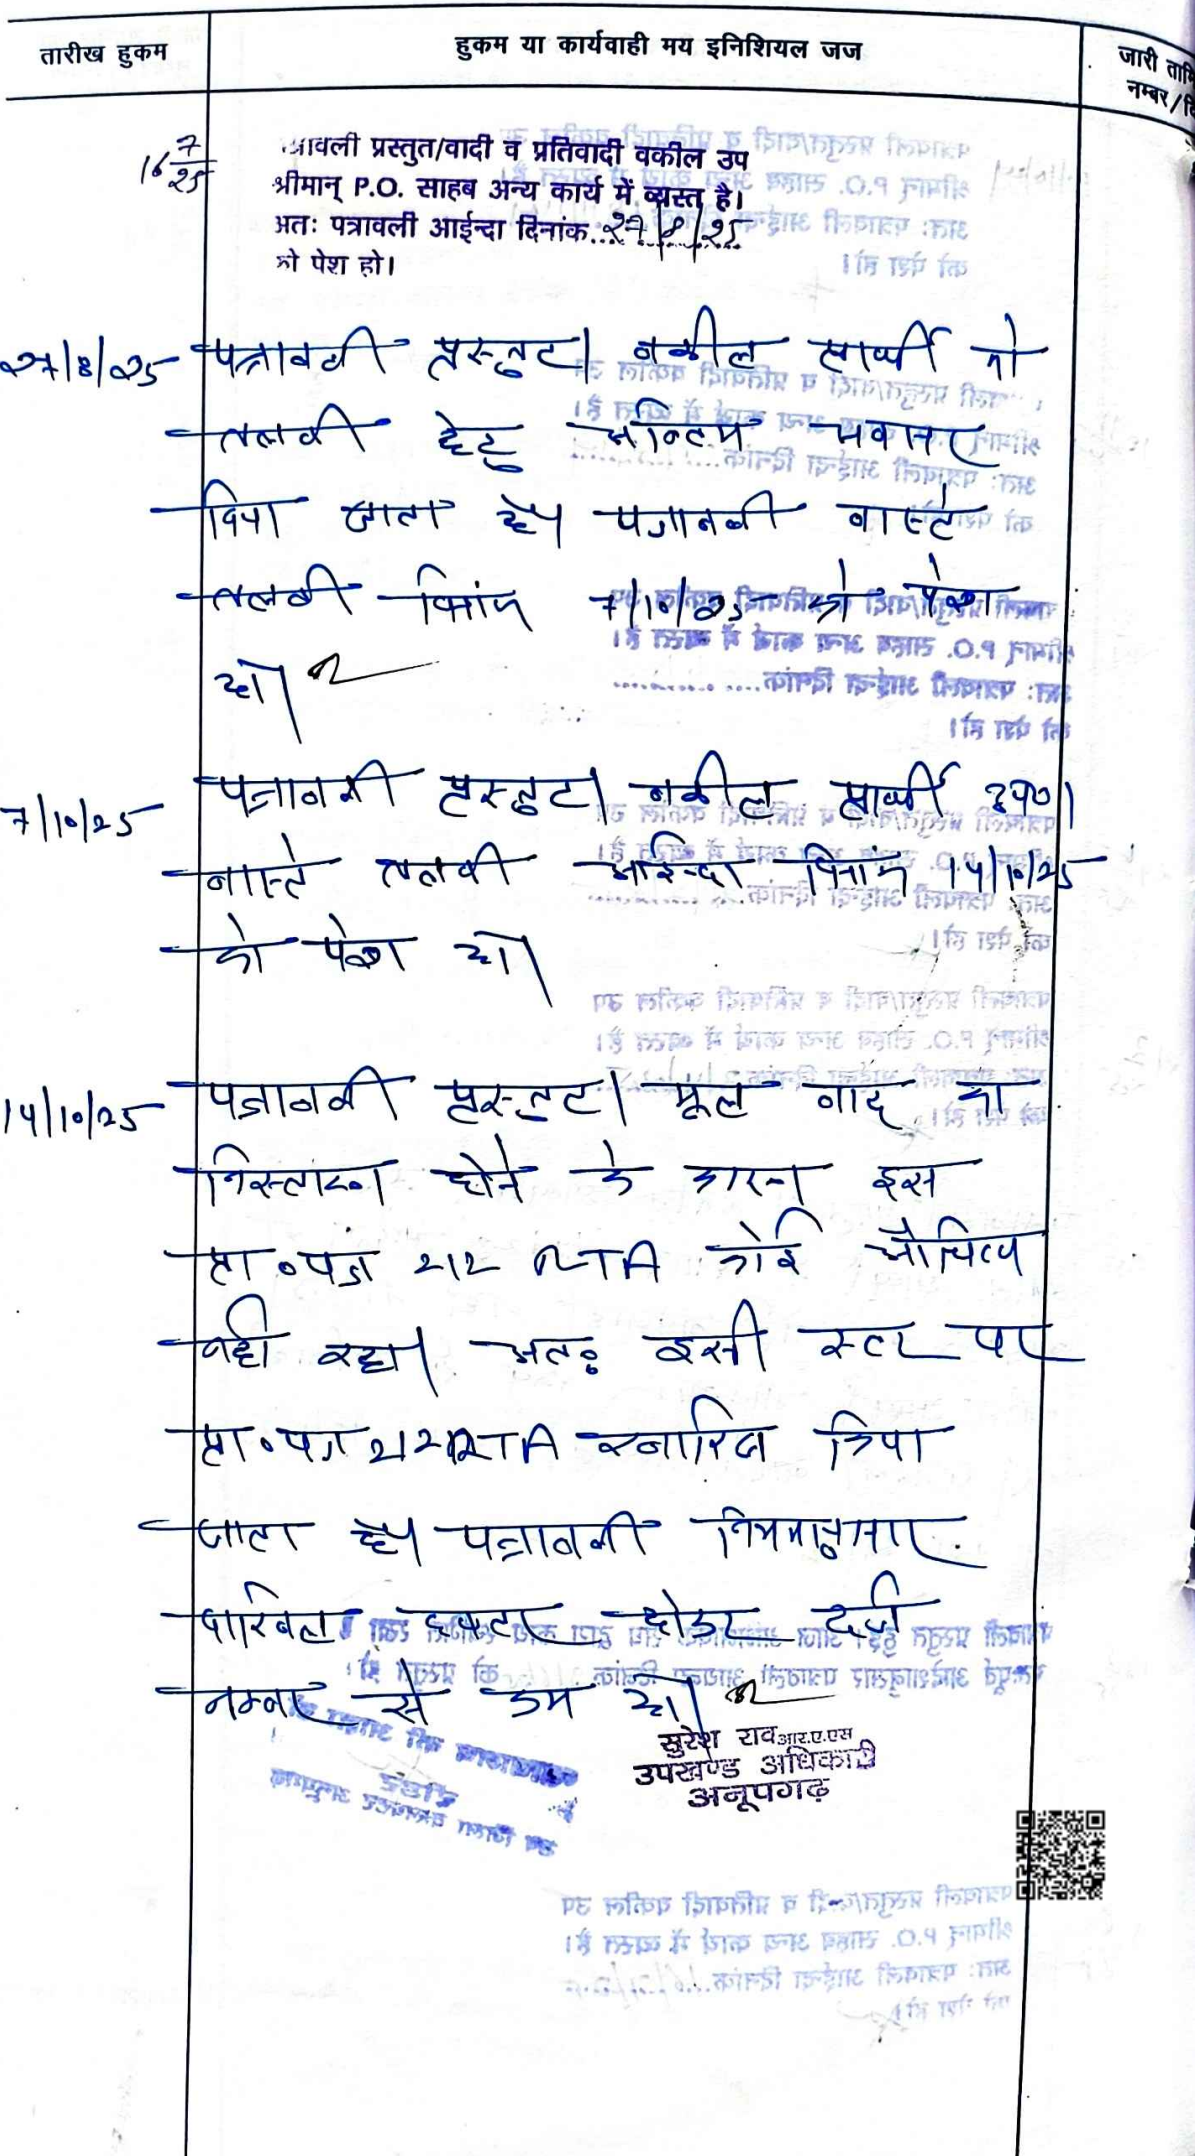 तारीख हुकम
हुकम या कार्यवाही मय इनिशियल जज
जारी
नम्बर/
16 7/25
त्रावली प्रस्तुत/वादी व प्रतिवादी वकील उप
श्रीमान् P.O. साहब अन्य कार्य में व्यस्त है।
अतः पत्रावली आईन्दा दिनांक...27/8/25
को पेश हो।
27/8/25
पत्रावली प्रस्तुत। वकील प्रार्थी को
तलबी हेतु अन्तिम अवसर
दिया जाता है। पत्रावली वास्ते
तलबी दिनांक 7/10/25 को पेश
हो।
7/10/25
पत्रावली प्रस्तुत। वकील प्रार्थी उप०।
वास्ते तलबी आईन्दा दिनांक 14/10/25
को पेश हो।
14/10/25
पत्रावली प्रस्तुत। मूल वाद का
निस्तारण होने के कारण इस
प्रा०पत्र 212 RTA कोई औचित्य
नही रहा। अतः इसी स्टर पर
प्रा०पत्र 212 RTA खारिज किया
जाता है। पत्रावली नियमानुसार
दाखिल दफ्तर होकर दर्ज
नम्बर से कम हो।
सुरेश राव आर.ए.एस
उपखण्ड अधिकारी
अनूपगढ़